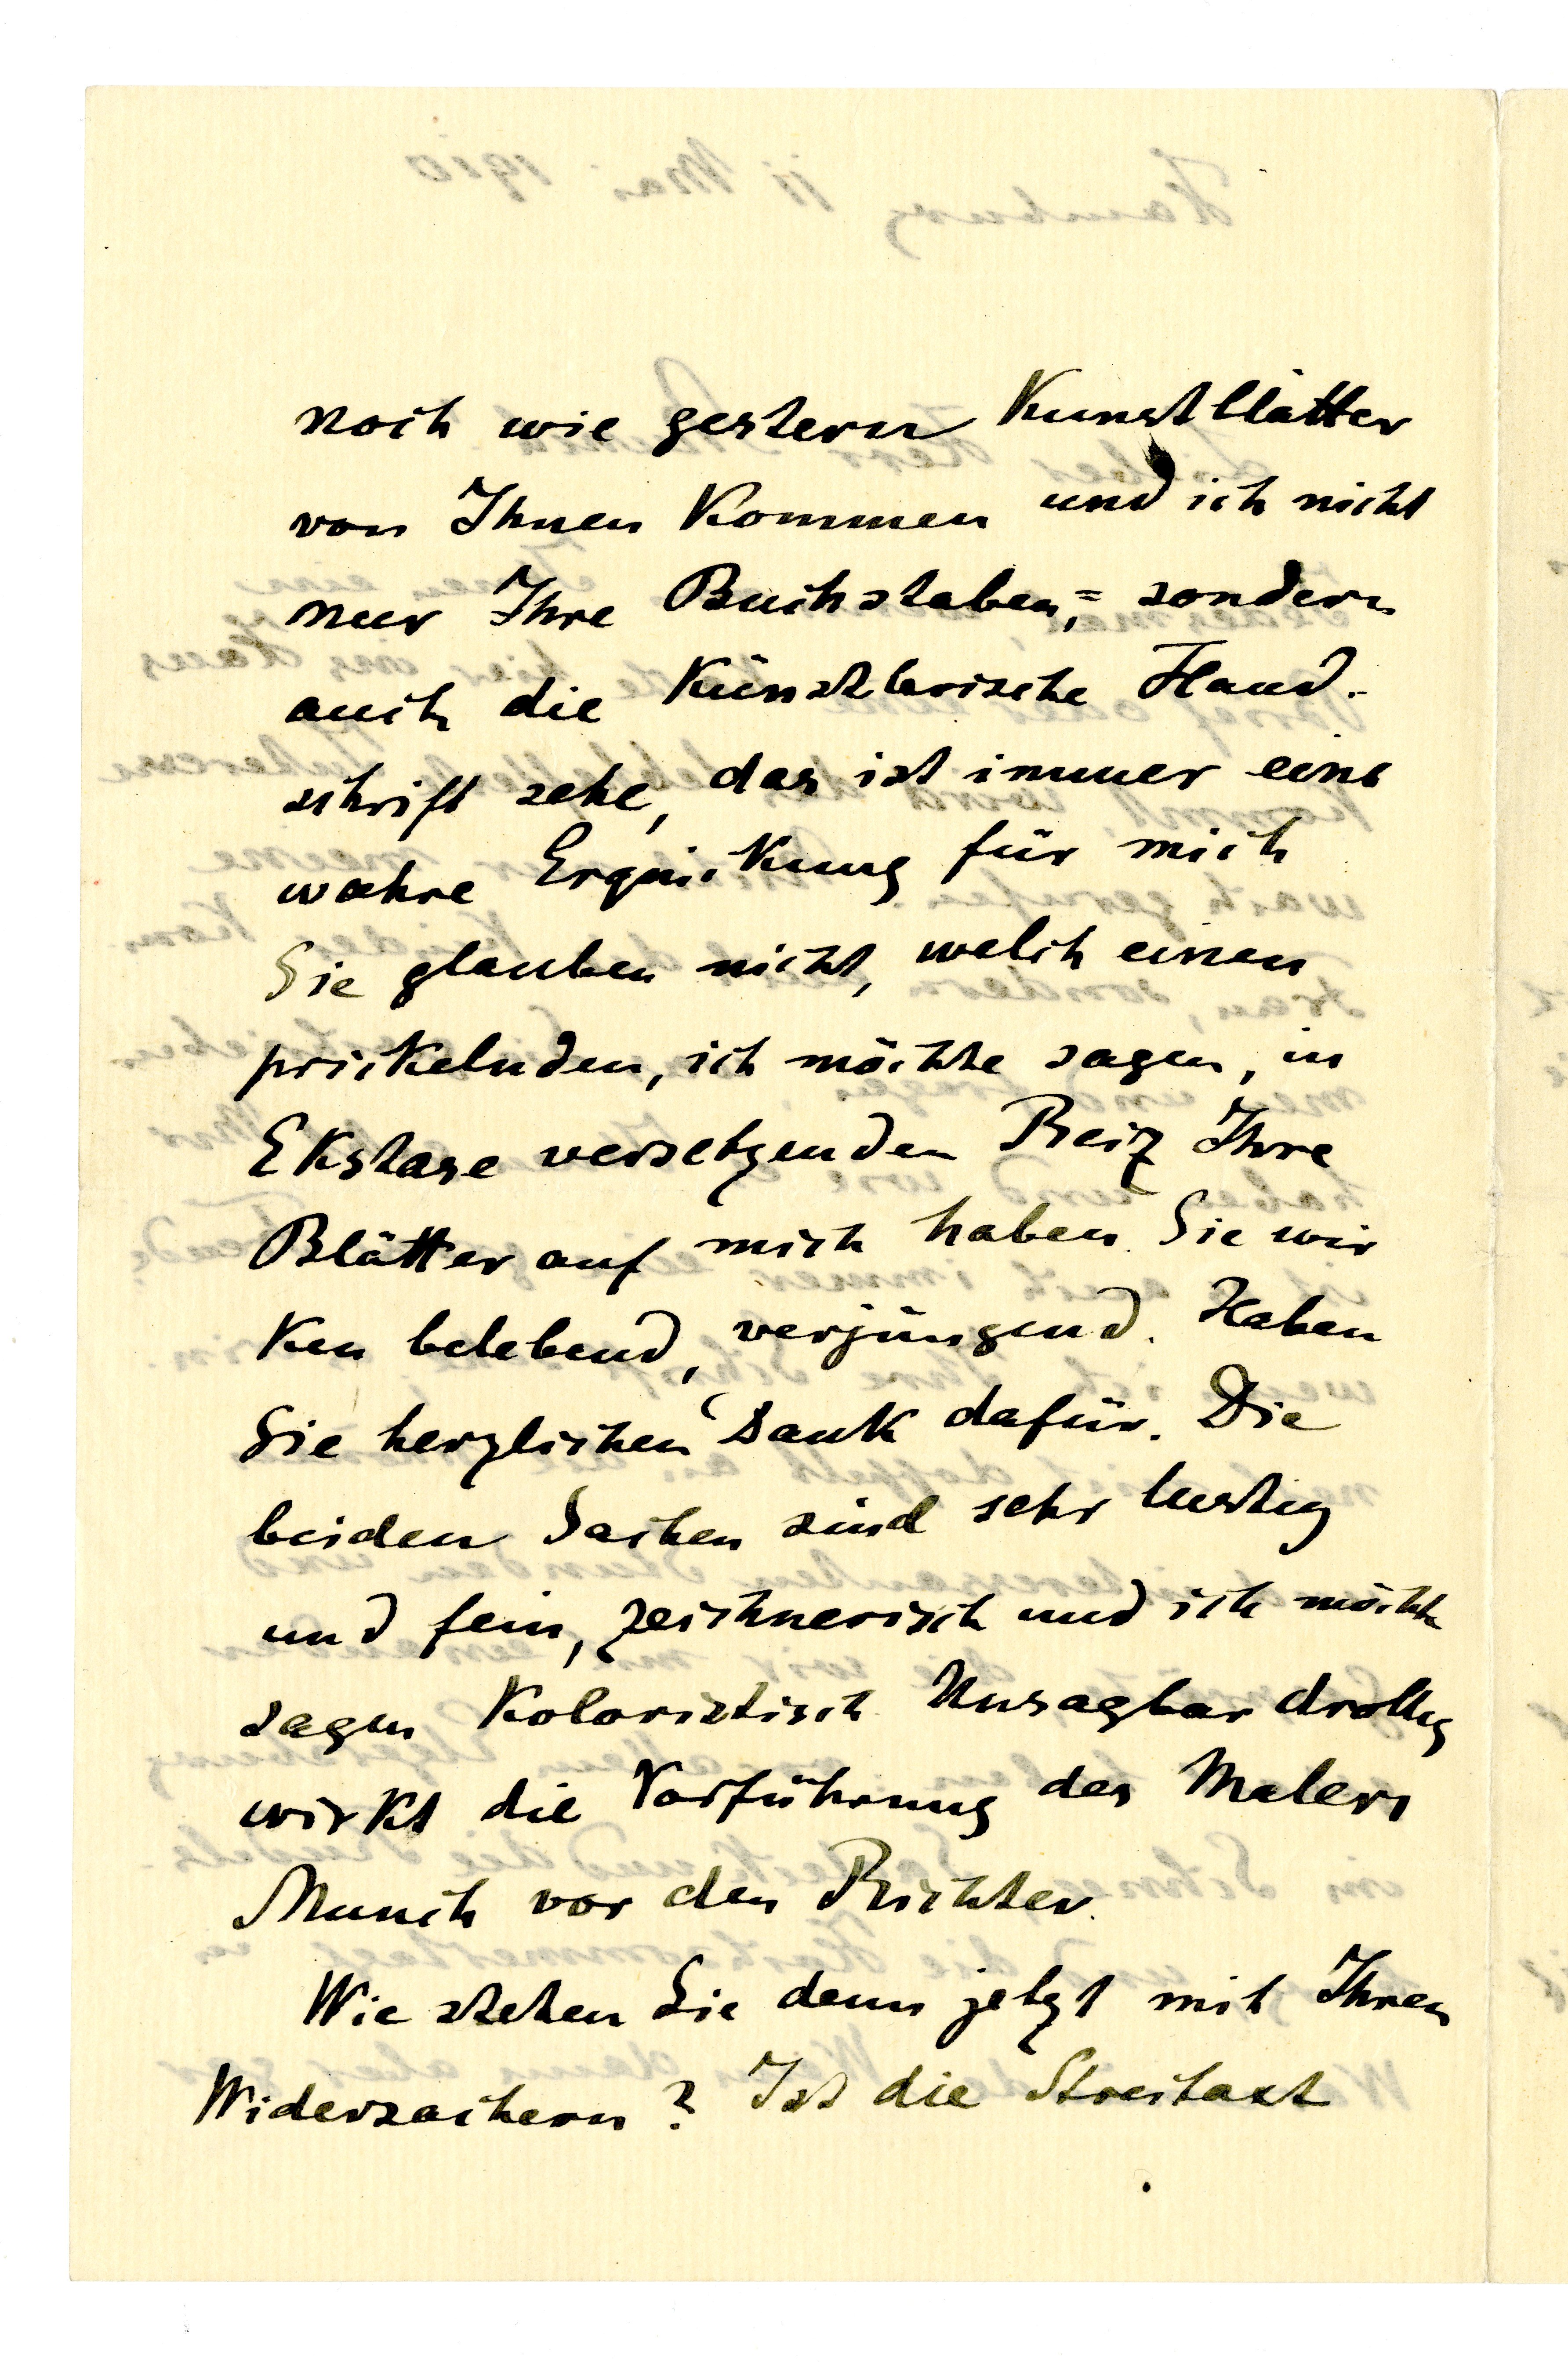 noch wie gestern Kunstblätter
von Ihnen kommen und ich nicht
nur Ihre Buchstaben,= sondern
auch die künstlerische Hand-
schrift sehe, das ist immer eine
wahre Erquickung für mich
Sie glauben nicht, welch einen
prickelnden, ich möchte sagen, in
Ekstase versetzenden Reiz Ihre
Blätter auf mich haben. Sie wir
ken belebend, verjüngend. Haben
Sie herzlichen Dank dafür. Die
beiden Sachen sind sehr lustig
und fein, zeichnerisch und ich möchte
sagen koloristisch Unsagbar drollig
wirkt die Vorführung des Malers
Munch vor den Richter.
Wie stehen Sie denn jetzt mit Ihren
Widersachern? Ist die Streitaxt